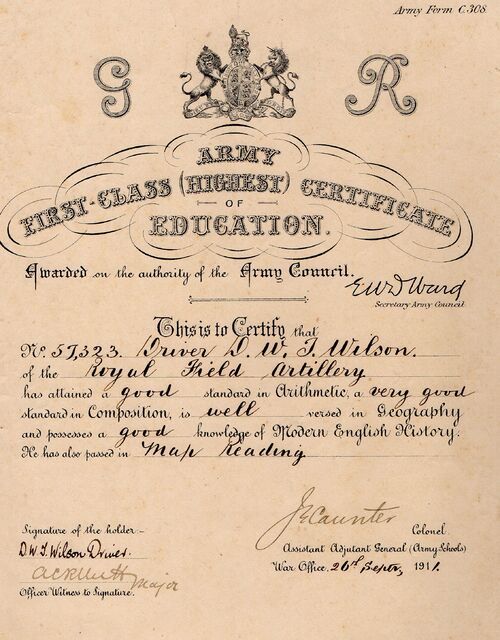 Army Form C.308.
G R
ARMY
FIRST-CLASS (HIGHEST) CERTIFICATE
OF
EDUCATION.
Awarded on the authority of the Army Council.
EWD Ward
Secretary Army Council
This is to Certify that
No 57,323. Driver D. W. T. Wilson.
of the Royal Field Artillery
has attained a good standard in Arithmetic, a very good
standard in Composition, is well versed in Geography
and possesses a good knowledge of Modern English History.
He has also passed in Map Reading
J E Caunter
Signature of the holder:-
Colonel.
D. W. T. Wilson Driver.
Assistant Adjutant General (Army Schools)
War Office, 26th Septr, 1911.
Major
Officer Witness to Signature.